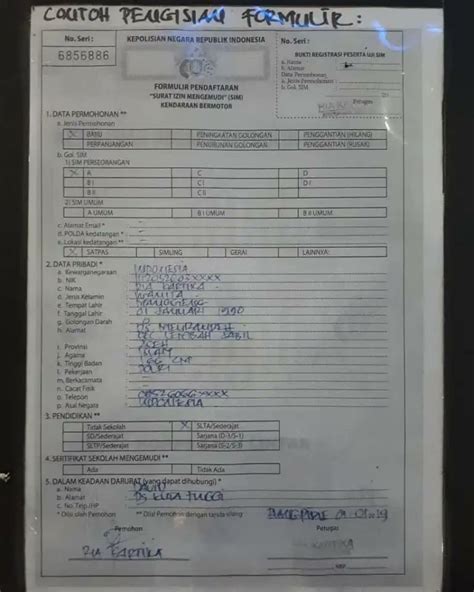 CONTOH PENGISIAN FORMULIR :
No. Seri :
6856886
KEPOLISIAN NEGARA REPUBLIK INDONESIA
FORMULIR PENDAFTARAN
"SURAT IZIN MENGEMUDI" (SIM)
KENDARAAN BERMOTOR
No. Seri :
BUKTI REGISTRASI PESERTA UJI SIM
a. Nama
b. Alamat
Petugas
1. DATA PERMOHONAN **
a. Jenis Permohonan
X BARU PENINGKATAN GOLONGAN PENGGANTIAN (HILANG)
PERPANJANGAN PENURUNAN GOLONGAN PENGGANTIAN (RUSAK)
b. Gol. SIM
1) SIM PERSEORANGAN
X A C D
B I C I D I
B II C II
2) SIM UMUM
A UMUM B I UMUM B II UMUM
c. Alamat Email * : -
d. POLDA kedatangan * : -
e. Lokasi kedatangan **
X SATPAS SIMLING GERAI LAINNYA:
2. DATA PRIBADI *
a. Kewarganegaraan : INDONESIA
b. NIK
c. Nama : DIA KARTIKA
d. Jenis Kelamin : WANITA
e. Tempat Lahir
f. Tanggal Lahir : 01 JANUARI 1990
g. Golongan Darah
h. Alamat
KEC. LEMBAH SABIL
i. Provinsi : ACEH
j. Agama : ISLAM
k. Tinggi Badan : 165 CM
l. Pekerjaan : POLRI
m. Berkacamata : -
n. Cacat Fisik : -
o. Telepon
p. Kual Negara : INDONESIA
3. PENDIDIKAN **
Tidak Sekolah X SLTA/Sederajat
SD/Sederajat Sarjana (D-3/S-1)
SLTP/Sederajat Sarjana (S-2/S-3)
4. SERTIFIKAT SEKOLAH MENGEMUDI **
Ada Tidak Ada
5. DALAM KEADAAN DARURAT (yang dapat dihubungi) *
a. Nama : DAVID
b. Alamat : DS KUTA TINGGI
c. No. Tlp/HP
* Diisi oleh Pemohon ** Diisi Pemohon dengan tanda silang
Pemohon Petugas
KARTIKA
NRP